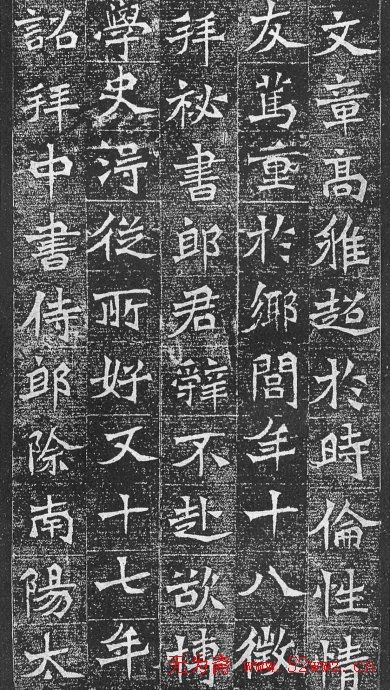 文章高雅超於時倫性情
友篤重於鄉閭年十八徵
拜祕書郎君辭不赴欲博
學史得從所好又十七年
詔拜中書侍郎除南陽太
无为斋 www.52wwz.cn